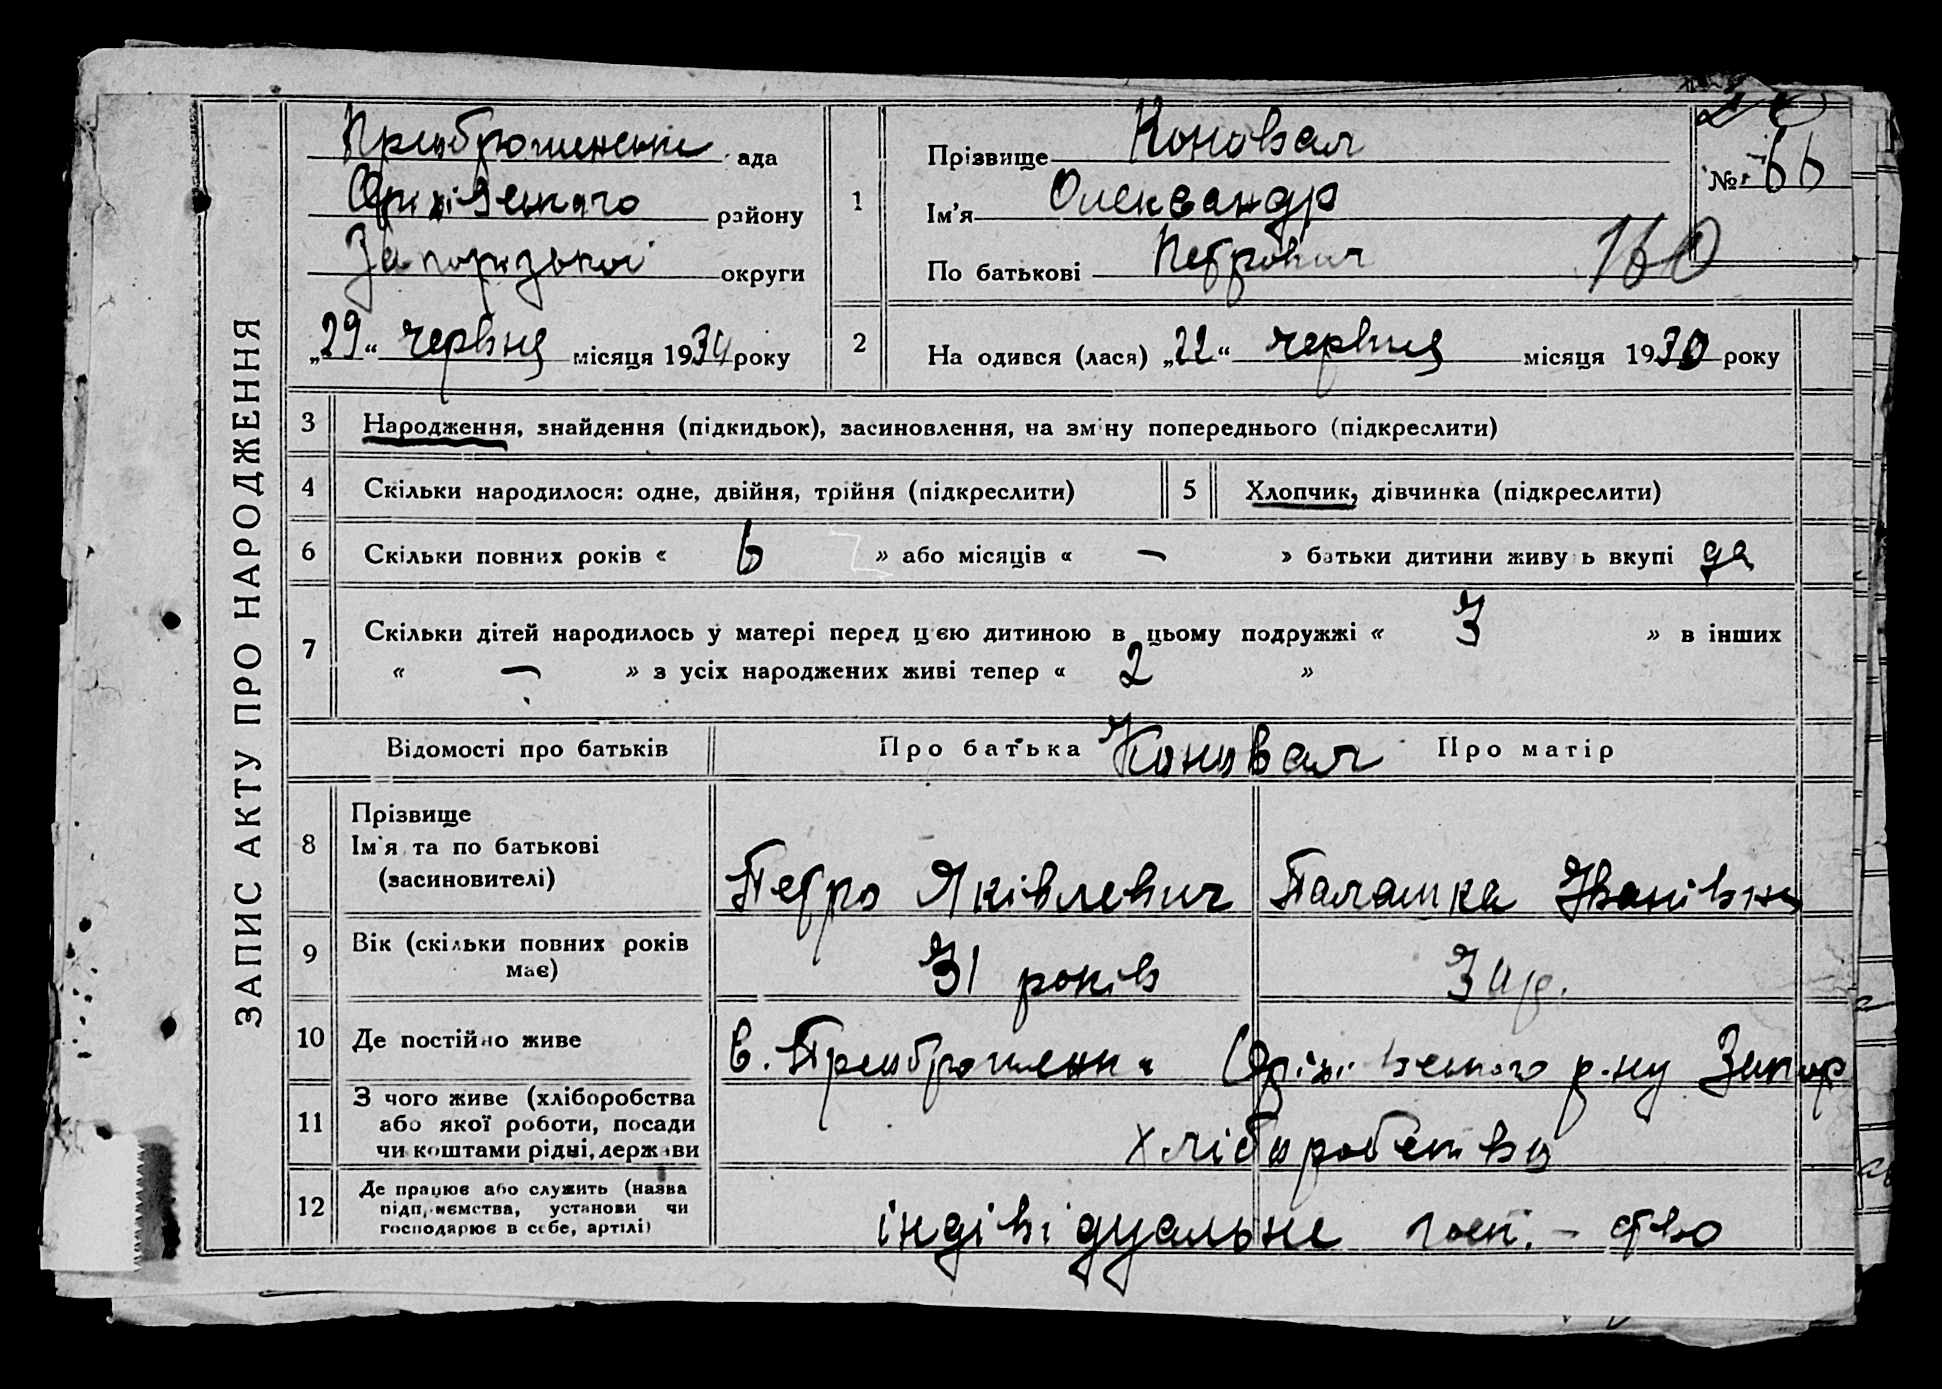 ЗАПИС АКТУ ПРО НАРОДЖЕННЯ
Преображенська ада
Оріхівського району
Запорізької округи
„29“ червня місяця 1930 року
1
Прізвище Коновал
Ім'я Олександр
По батькові Петрович
№ 66
160
2
На одився (лася) „22“ червня місяця 1930 року
3 Народження, знайдення (підкидьок), засиновлення, на зміну попереднього (підкреслити)
4 Скільки народилося: одне, двійня, трійня (підкреслити)
5 Хлопчик, дівчинка (підкреслити)
6 Скільки повних років « 6 » або місяців « — » батьки дитини живу ь вкупі да
7 Скільки дітей народилось у матері перед цією дитиною в цьому подружжі « 3 » в інших
« — » з усіх народжених живі тепер « 2 »
Відомості про батьків Про батька Коновал Про матір
8 Прізвище
Ім'я та по батькові
(засиновителі)
Петро Яківлевич Палашка Іванівна
9 Вік (скільки повних років
має)
31 років
10 Де постійно живе
в. Преображенка Оріхівського р-ну Запор
11 З чого живе (хліборобства
або якої роботи, посади
чи коштами рідні, держави
хліборобство
12 Де працює або служить (назва
підприємства, установи чи
господарює в себе, артілі)
індівідуальне госп. - ство